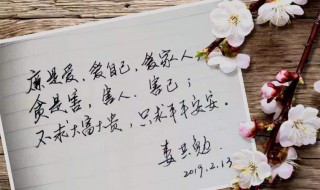 廉是爱,爱自己,爱家人。
贪是害,害人、害己;
不求大富大贵,只求平平安安。
姜其勉
2019.2.13